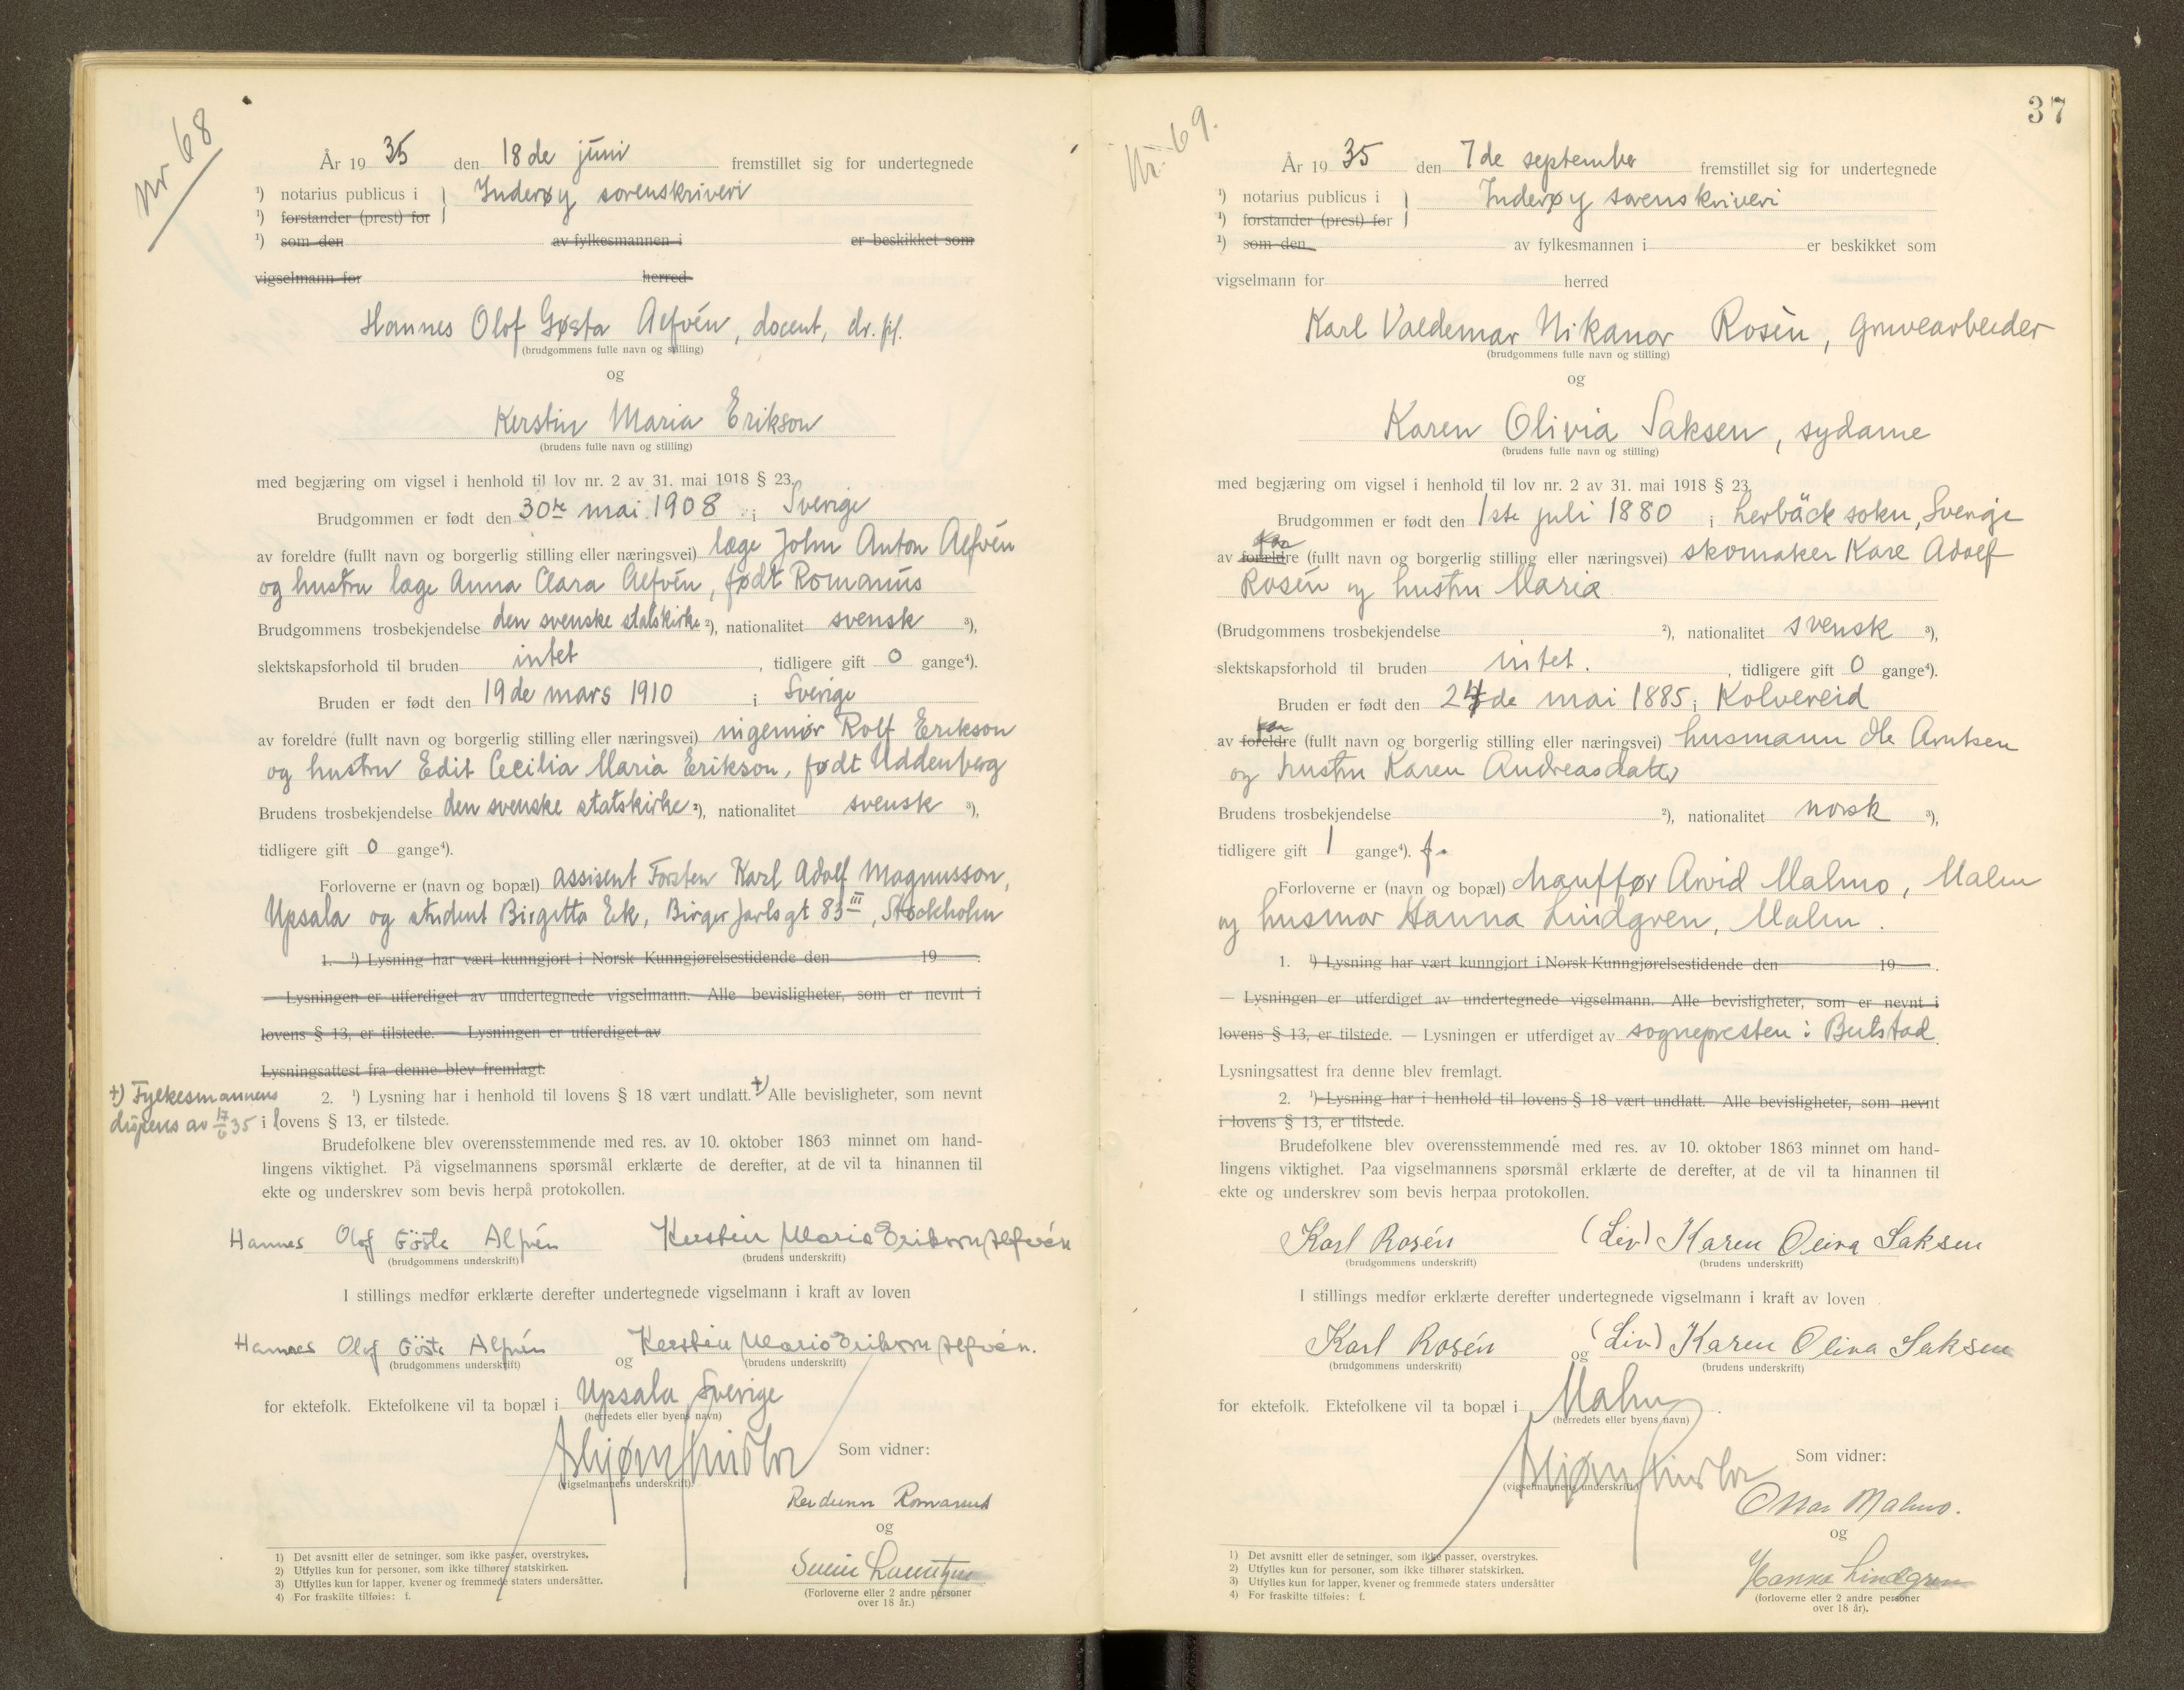 Nr 68
År 19 35 den 18de juni fremstillet sig for undertegnede
¹) notarius publicus i } Inderøy sorenskriveri
¹) forstander (prest) for
¹) som den av fylkesmannen i er beskikket som
vigselmann for herred
Hannes Olof Gøsta Alfvén, docent, dr. fil.
(brudgommens fulle navn og stilling)
og
Kerstin Maria Erikson
(brudens fulle navn og stilling)
med begjæring om vigsel i henhold til lov nr. 2 av 31. mai 1918 § 23.
Brudgommen er født den 30te mai 1908 i Sverige
av foreldre (fullt navn og borgerlig stilling eller næringsvei) læge John Anton Alfvén
og hustru læge Anna Clara Alfvén, født Romanus
Brudgommens trosbekjendelse den svenske statskirke ²), nationalitet svensk ³),
slektskapsforhold til bruden intet, tidligere gift 0 gange⁴).
Bruden er født den 19de mars 1910 i Sverige
av foreldre (fullt navn og borgerlig stilling eller næringsvei) ingeniør Rolf Erikson
og hustru Edit Cecilia Maria Erikson, født Uddenberg
Brudens trosbekjendelse den svenske statskirke ²), nationalitet svensk ³),
tidligere gift 0 gange⁴).
Forloverne er (navn og bopæl) assisent Torsten Karl Adolf Magnusson,
Upsala og student Birgitta Ek, Birger Jarlsgt 83 III, Stockholm
1. ¹) Lysning har vært kunngjort i Norsk Kunngjørelsestidende den 19 .
— Lysningen er utferdiget av undertegnede vigselmann. Alle bevisligheter, som er nevnt i
lovens § 13, er tilstede. — Lysningen er utferdiget av
Lysningsattest fra denne blev fremlagt.
+) Fylkesmannens
dispens av 17/6 35
2. ¹) Lysning har i henhold til lovens § 18 vært undlatt. +) Alle bevisligheter, som nevnt
i lovens § 13, er tilstede.
Brudefolkene blev overensstemmende med res. av 10. oktober 1863 minnet om hand-
lingens viktighet. På vigselmannens spørsmål erklærte de derefter, at de vil ta hinannen til
ekte og underskrev som bevis herpå protokollen.
Hannes Olof Gösta Alfvén Kerstin Maria Erikson Alfvén
(brudgommens underskrift) (brudens underskrift)
I stillings medfør erklærte derefter undertegnede vigselmann i kraft av loven
Hannes Olof Gösta Alfvén og Kerstin Maria Erikson Alfvén.
(brudgommens underskrift) (brudens underskrift)
for ektefolk. Ektefolkene vil ta bopæl i Upsala Sverige
(herredets eller byens navn)
Som vidner:
(vigselmannens underskrift)
Reidunn Romanus
og
(Forloverne eller 2 andre personer
over 18 år.)
1) Det avsnitt eller de setninger, som ikke passer, overstrykes.
2) Utfylles kun for personer, som ikke tilhører statskirken.
3) Utfylles kun for lapper, kvener og fremmede staters undersåtter.
4) For fraskilte tilføies: f.
37
Nr. 69.
År 19 35 den 7de september fremstillet sig for undertegnede
¹) notarius publicus i } Inderøy sorenskriveri
¹) forstander (prest) for
¹) som den av fylkesmannen i er beskikket som
vigselmann for herred
Karl Valdemar Nikanor Rosén, gruvearbeider
(brudgommens fulle navn og stilling)
og
Karen Olivia Saksen, sydame
(brudens fulle navn og stilling)
med begjæring om vigsel i henhold til lov nr. 2 av 31. mai 1918 § 23.
Brudgommen er født den 1ste juli 1880 i Lerbäck sokn, Sverige
av foreldre (fullt navn og borgerlig stilling eller næringsvei) skomaker Karl Adolf
Rosén og hustru Maria
(Brudgommens trosbekjendelse ²), nationalitet svensk ³),
slektskapsforhold til bruden intet. , tidligere gift 0 gange⁴).
Bruden er født den 24de mai 1885 i Kolvereid
av foreldre (fullt navn og borgerlig stilling eller næringsvei) husmann Ole Arntsen
og hustru Karen Andreasdatter
Brudens trosbekjendelse ²), nationalitet norsk ³),
tidligere gift 1 gange⁴). f.
Forloverne er (navn og bopæl) chauffør Arvid Malmo, Malm
og husmor Hanna Lindgren, Malm.
1. ¹) Lysning har vært kunngjort i Norsk Kunngjørelsestidende den 19 .
— Lysningen er utferdiget av undertegnede vigselmann. Alle bevisligheter, som er nevnt i
lovens § 13, er tilstede. — Lysningen er utferdiget av sognepresten i Beitstad.
Lysningsattest fra denne blev fremlagt.
2. ¹) Lysning har i henhold til lovens § 18 vært undlatt. Alle bevisligheter, som nevnt
i lovens § 13, er tilstede.
Brudefolkene blev overensstemmende med res. av 10. oktober 1863 minnet om hand-
lingens viktighet. Paa vigselmannens spørsmål erklærte de derefter, at de vil ta hinannen til
ekte og underskrev som bevis herpaa protokollen.
Karl Rosén (Liv) Karen Oliva Saksen
(brudgommens underskrift) (brudens underskrift)
I stillings medfør erklærte derefter undertegnede vigselmann i kraft av loven
Karl Rosén og (Liv) Karen Oliva Saksen
(brudgommens underskrift) (brudens underskrift)
for ektefolk. Ektefolkene vil ta bopæl i Malm.
(herredets eller byens navn)
Som vidner:
(vigselmannens underskrift)
Malmo.
og
Hanna Lindgren
(forloverne eller 2 andre personer
over 18 år).
1) Det avsnitt eller de setninger, som ikke passer, overstrykes.
2) Utfylles kun for personer, som ikke tilhører statskirken.
3) Utfylles kun for lapper, kvener og fremmede staters undersåtter
4) For fraskilte tilføies: f.